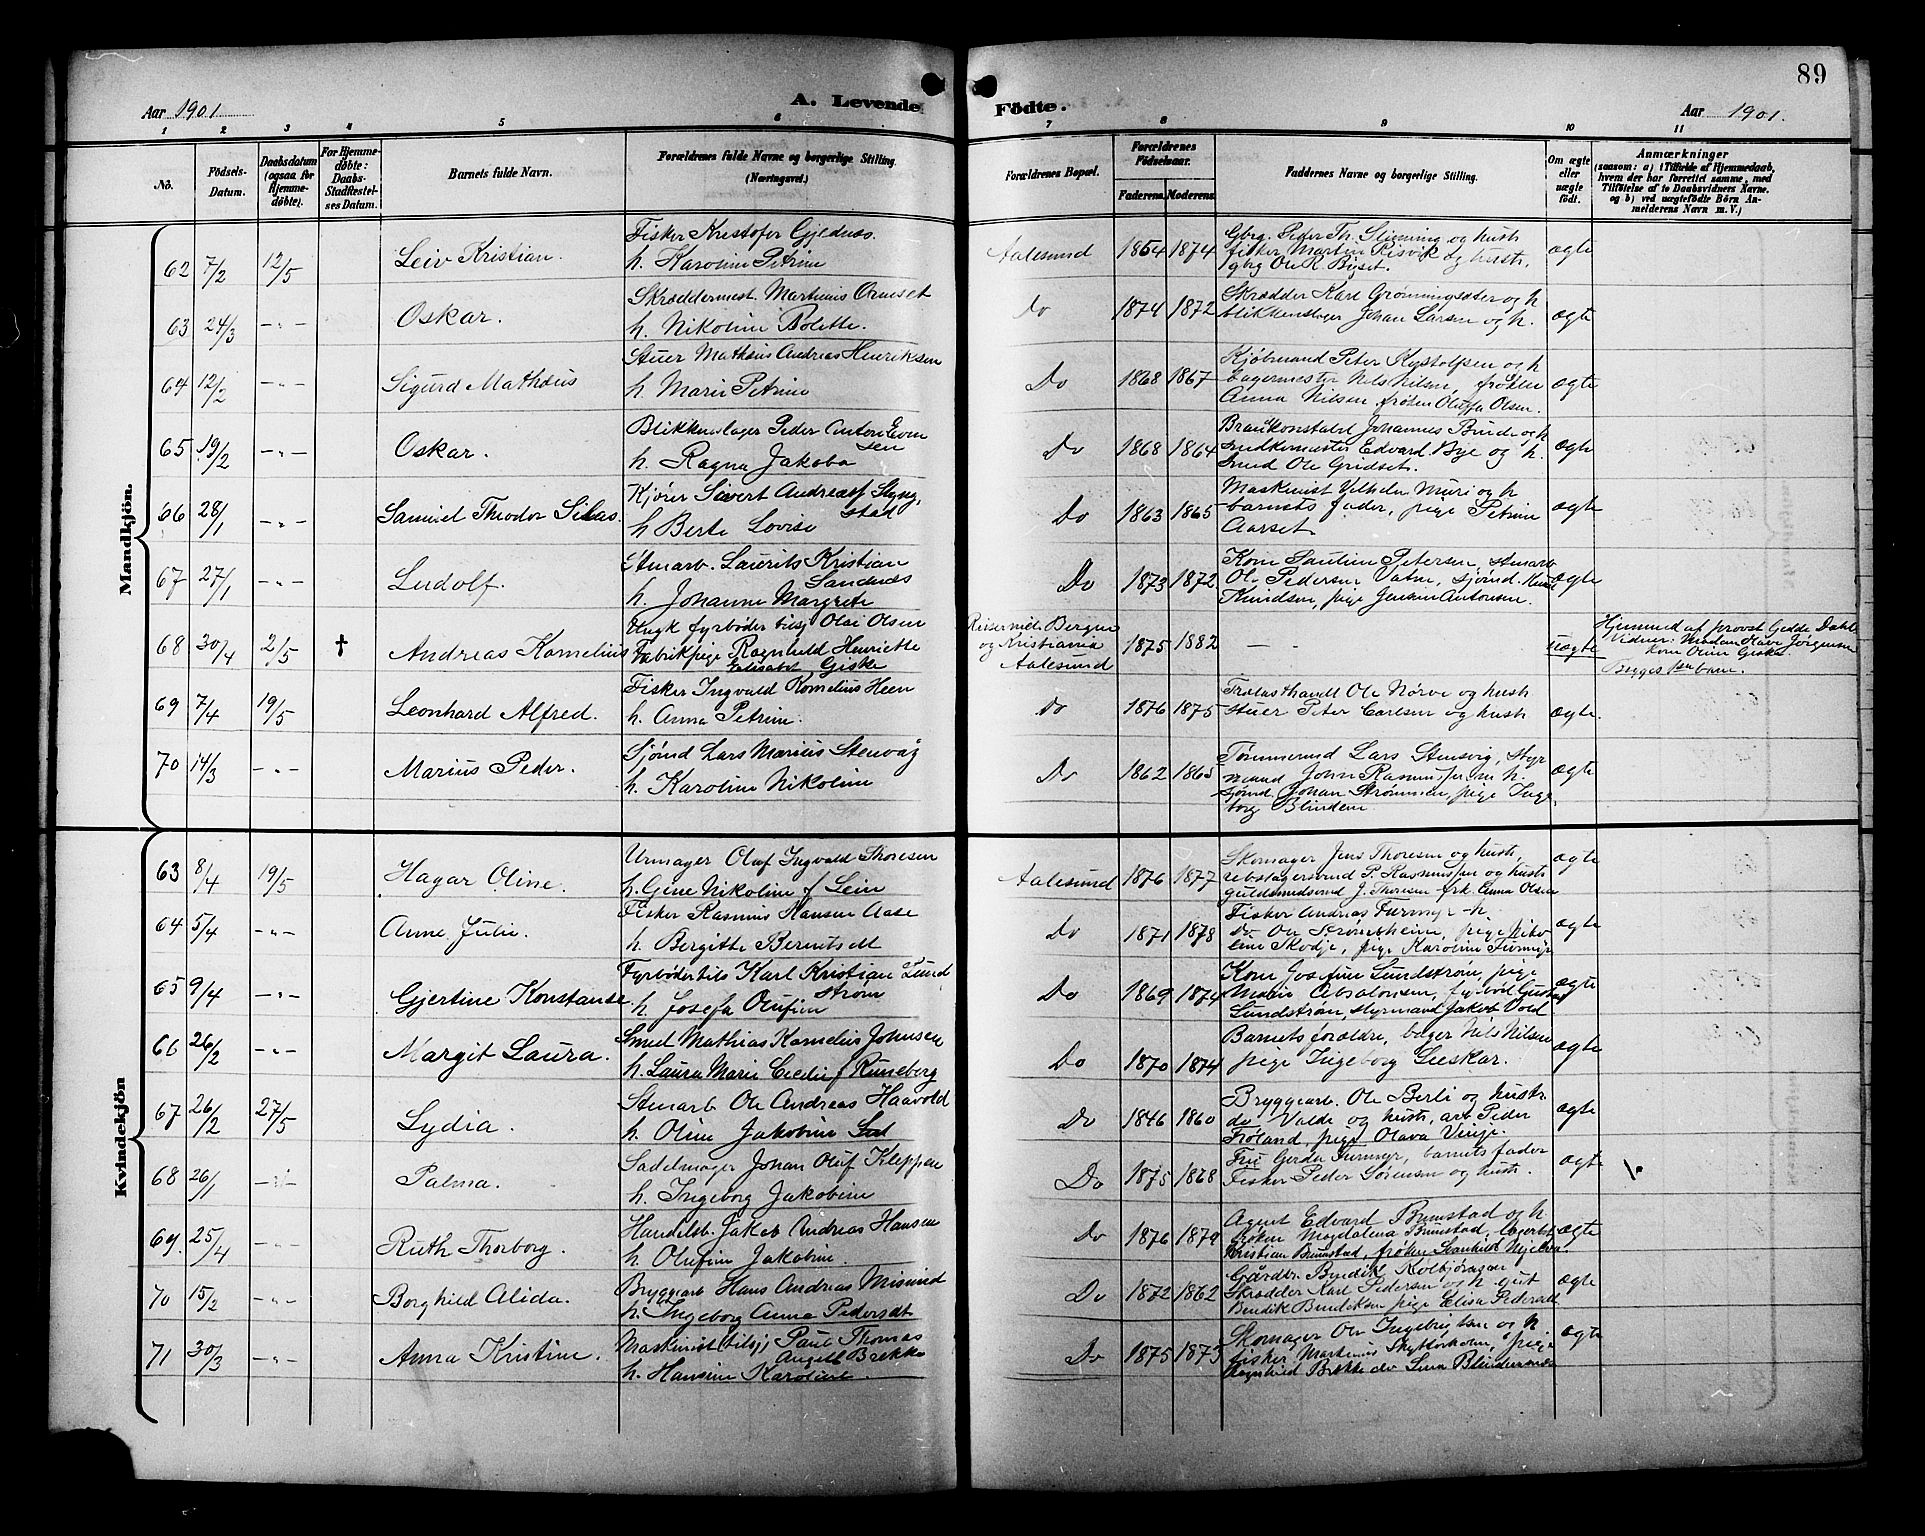 89
Aar 1901
A. Levende
Födte.
Aar 1901.
1 2 3 4 5 6 7 8 9 10 11
No.
Födsels-
Datum.
Daabsdatum
(ogsaa for
Hjemme-
döbte).
For Hjemme-
döbte:
Daabs-
Stadfestel-
ses Datum.
Barnets fulde Navn.
Forældrenes fulde Navne og borgerlige Stilling.
(Næringsvei.)
Forældrenes Bopæl.
Forældrenes
Födselsaar.
Faderens. Moderens.
Faddernes Navne og borgerlige Stilling.
Om ægte
eller
uægte
födt.
Anmærkninger
(saasom: a) i Tilfælde af Hjemmedaab,
hvem der har forrettet samme, med
Tilföielse af to Daabsvidners Navne.
og b) ved uægtefödte Börn An-
melderens Navn m. V.)
Mandkjön.
62 7/2 12/5 Leiv Kristian.
Fisker Kristofer Gjednæs.
h. Karoline Petrine
Aalesund 1864 1874
Gbrg. Peder Th. Slinning og hustr
fisker Martin Risvik og hustr,
gbrg Ole K. Byset.
ægte
63 24/3 -"- Oskar.
Skræddermest. Martinus Ormset
h. Nikoline Bolette.
Do 1874 1872
Skrædder Karl Grønningsæter og h
blikkenslager Johan Larsen og h.
ægte
64 12/2 -"- Sigurd Mathæus
Stuer Mathæus Andreas Henriksen
h. Marie Petrine
Do 1868 1867
Kjøbmand Peter Rystolfsen og h
bagermester Nils Nilsen, frøken
Anna Nilsen frøken Oluffa Olsen.
ægte
65 19/2 -"- Oskar.
Blikkenslager Peder Anton Even
sen
h. Ragna Jakoba
Do 1868 1864
Brandkonstabel Johannes Binde og h
snedkermester Edvard Bye og h.
smed Ole Gridset.
ægte
66 28/1 -"- Samuel Theodor Silas.
Kjører Sivert Andreas Slyng,
stad
h Berte Lovise
Do 1863 1865
Maskinist Vilhelm Muri og h
barnets fader, pige Petrine
Aarset.
ægte
67 27/1 -"- Ludolf.
Stenarb. Laurits Kristian
Sandnæs
h. Johanne Margrete
Do 1873 1872
Kone Pauline Petersen, stenarb
Ole Pedersen Vatne, sjømd. Knut
Knudsen, pige Jensine Antonsen.
ægte
68 30/4 2/5 † Andreas Kornelius
Ungk fyrbøder tils Olai Olsen
Fabrikpige Ragnhild Henriette
Elisabet Giske
Reiser ml. Bergen
og Kristiania
Aalesund
1875 1882
—
uægte
Hjemmed af provst Gedde Dahl
Vidner: Madam Jørgensen
kone Oline Giske
Begges 1ste barn.
69 7/4 19/5 Leonhard Alfred.
Fisker Ingvald Kornelius Heen
h. Anna Petrine.
Do 1876 1875
Trælasthandl Ole Nørve og hustr
stuer Peter Carlsen og hustr
ægte.
70 14/3 -"- Marius Peder.
Sjømd Lars Marius Stenvåg
h. Karoline Nikoline
Do 1862 1865
Tømmermd Lars Stensvig, styr
mand John Rasmussen m h.
sjømd Johan Strømmen, pige Inge
borg Blindem
ægte
Kvindekjön
63 8/4 19/5 Hagar Oline.
Urmager Oluf Ingvald Thoresen
h. Gine Nikoline f Lein
Aalesund 1876 1877
Skomager Jens Thoresen og hustr,
rebslagersvend P. Rasmussen og hustr
guldsmedsvend J. Thoresen frk. Anna Olsen
ægte
64 5/4 -"- Anne Julie.
Fisker Rasmus Hansen Aase
h. Bergitte Berentsdt
Do 1871 1878
Fisker Andreas Furmyr h,
do Ole Strømsheim, pige Niko
line Skodje, pige Karoline Furmyr
ægte
65 9/4 -"- Gjertine Konstanse
Fyrbøder tils Karl Kristian Lund
strøm
h. Josefa Olufine
Do 1869 1874
Kone Josefine Lundstrøm, pige
Marie Absalonsen, fyrbød Gustav
Lundstrøm, styrmand Jakob Vold
ægte
66 26/2 -"- Margit Laura.
Smed Mathias Kornelius Johnsen
h. Laura Marie Cecilie f Runeborg
Do 1870 1874
Barnets forældre, bager Nils Nilsen
pige Ingeborg Leeskar.
ægte
67 26/2 27/5 Lydia.
Stenarb Ole Andreas Haavold
h. Oline Jakobine
Do 1846 1860
Bryggearb. Ole Berli og hustr.
do Valde og hustr, arb Peder
Frøland, pige Olava Vinje.
ægte
68 26/1 -"- Palma.
Sadelmager Johan Oluf Kleppen
h. Ingeborg Jakobine
Do 1875 1868
Frue Gerda Furmyr, barnets fader
Fisker Peder Sørensen og hustr.
ægte
69. 25/4 -"- Ruth Thorborg.
Handelsb. Jakob Andreas Hansen
h. Olufine Jakobine
Do 1876 1879
Agent Edvard Bunustad og h
frøken Magdalena Bunustad, lagerb
Kristian Bunustad, frøken
ægte
70 15/2 -"- Borghild Alida.
Bryggearb Hans Andreas Misund
h. Ingeborg Anna Pedersdt
Do 1872 1862
Gårdbr. Kolbjørnsen
Skrædder Karl Pedersen og h. gut
Bendik Bendiksen pige Elisa Pedersdt
ægte
71 30/3 -"- Anna Kristine.
Maskinist tils; Paul Thomas
Angell Brekke
h. Hansine Karoline
Do 1875 1873
Skomager Ole Ingebrigtsen og h
fisker Martinus Skyttørholm, pige
Ragnhild Brekke do Lina Blindemnæs
ægte